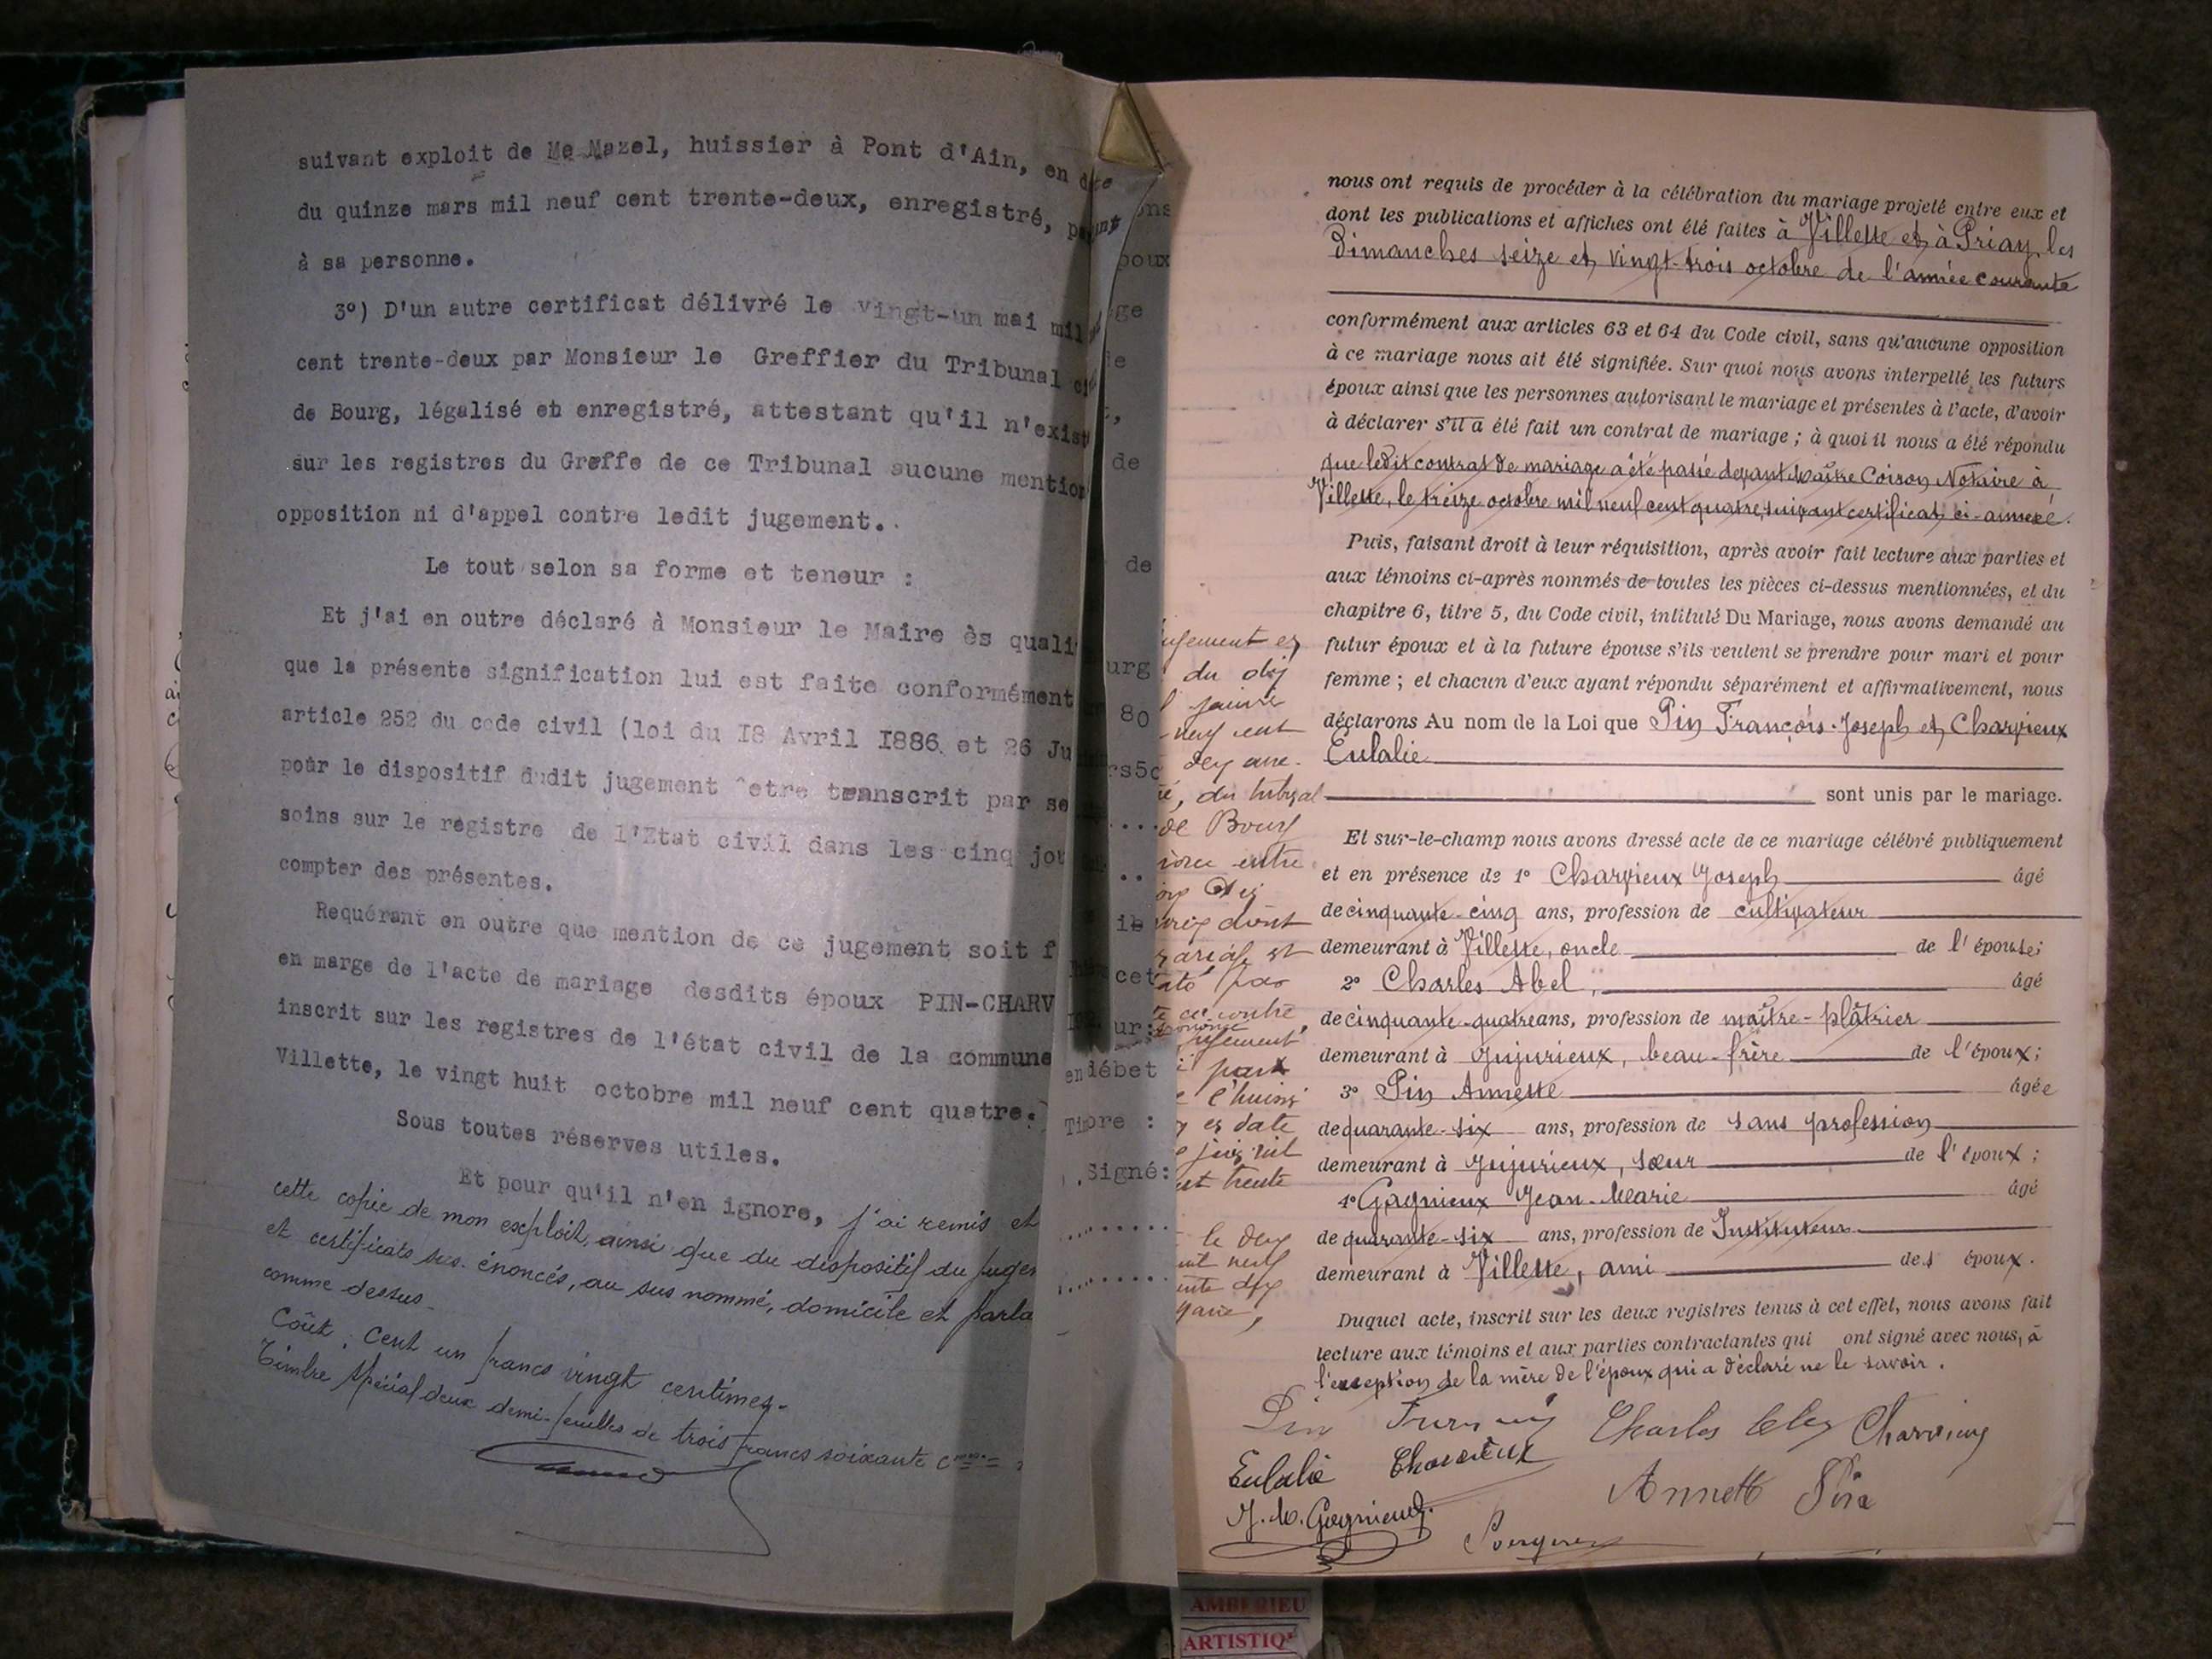 suivant exploit de Me Mazel, huissier à Pont d'Ain, en date
du quinze mars mil neuf cent trente-deux, enregistré,
à sa personne.
3°) D'un autre certificat délivré le vingt-un mai mil
cent trente-deux par Monsieur le Greffier du Tribunal
de Bourg, légalisé et enregistré, attestant qu'il n'exist
sur les registres du Greffe de ce Tribunal aucune mention
opposition ni d'appel contre ledit jugement.
Le tout selon sa forme et teneur :
Et j'ai en outre déclaré à Monsieur le Maire ès quali
que la présente signification lui est faite conformément
article 252 du code civil (loi du I8 Avril I886. et 26 Ju
pour le dispositif dudit jugement ^etre transcrit par se
soins sur le registre de l'Etat civil dans les cinq jou
compter des présentes.
Requérant en outre que mention de ce jugement soit f
en marge de l'acte de mariage desdits époux PIN-CHARV
inscrit sur les registres de l'état civil de la commune
Villette, le vingt huit octobre mil neuf cent quatre.
Sous toutes réserves utiles.
Et pour qu'il n'en ignore, j'ai remis et
cette copie de mon exploit, ainsi que du dispositif du jugem
et certificats sus-énoncés, au sus nommé, domicile et parla
comme dessus-
Coût : cent un francs vingt centimes-
Timbre spécial deux demi-feuilles de trois francs soixante
ons
poux
ge
de
de
urg
80
rs50
cet
ur:
en débet
Timbre :
Signé:
jugement en
du dix
neuf cent
du tribunal
de Bourg
entre
dont
mariage est
par
jugement
part
date
trente
nous ont requis de procéder à la célébration du mariage projeté entre eux et
dont les publications et affiches ont été faites à Villette et à Priay, les
Dimanches seize et vingt-trois octobre de l'année courante
conformément aux articles 63 et 64 du Code civil, sans qu'aucune opposition
à ce mariage nous ait été signifiée. Sur quoi nous avons interpellé les futurs
époux ainsi que les personnes autorisant le mariage et présentes à l'acte, d'avoir
à déclarer s'il a été fait un contrat de mariage ; à quoi il nous a été répondu
que ledit contrat de mariage a été passé devant Maître Coiron Notaire à
Villette, le treize octobre mil neuf cent quatre, suivant certificat ci-annexé.
Puis, faisant droit à leur réquisition, après avoir fait lecture aux parties et
aux témoins ci-après nommés de toutes les pièces ci-dessus mentionnées, et du
chapitre 6, titre 5, du Code civil, intitulé Du Mariage, nous avons demandé au
futur époux et à la future épouse s'ils veulent se prendre pour mari et pour
femme ; et chacun d'eux ayant répondu séparément et affirmativement, nous
déclarons Au nom de la Loi que Pin François-Joseph et Charvieux
Eulalie
sont unis par le mariage.
Et sur-le-champ nous avons dressé acte de ce mariage célébré publiquement
et en présence de 1° Charvieux Joseph âgé
de cinquante-cinq ans, profession de cultivateur
demeurant à Villette, oncle de l'épouse;
2° Charles Abel, âgé
de cinquante-quatre ans, profession de maître-plâtrier
demeurant à Jujurieux, beau-frère de l'époux;
3° Pin Annette âgée
de quarante-six ans, profession de sans profession
demeurant à Jujurieux, sœur de l'époux ;
4° Gagnieux Jean-Marie âgé
de quarante-six ans, profession de Instituteur
demeurant à Villette, ami des époux.
Duquel acte, inscrit sur les deux registres tenus à cet effet, nous avons fait
lecture aux témoins et aux parties contractantes qui ont signé avec nous, à
l'exception de la mère de l'époux qui a déclaré ne le savoir.
Pin Charles Abel Charvieux
Eulalie Charvieux Annette Pin
J. M. Gagnieux.
AMBERIEU
ARTISTIQ